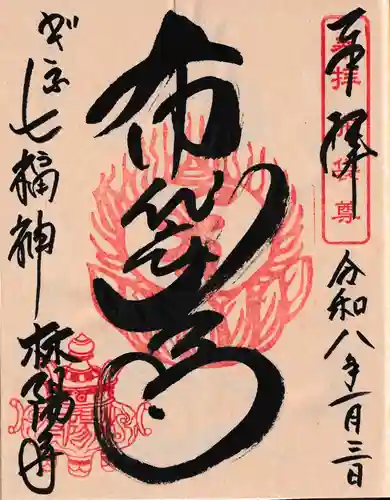 奉拝
拝 布袋尊
令和八年一月三日
布袋尊
ぎふ七福神 林陽寺